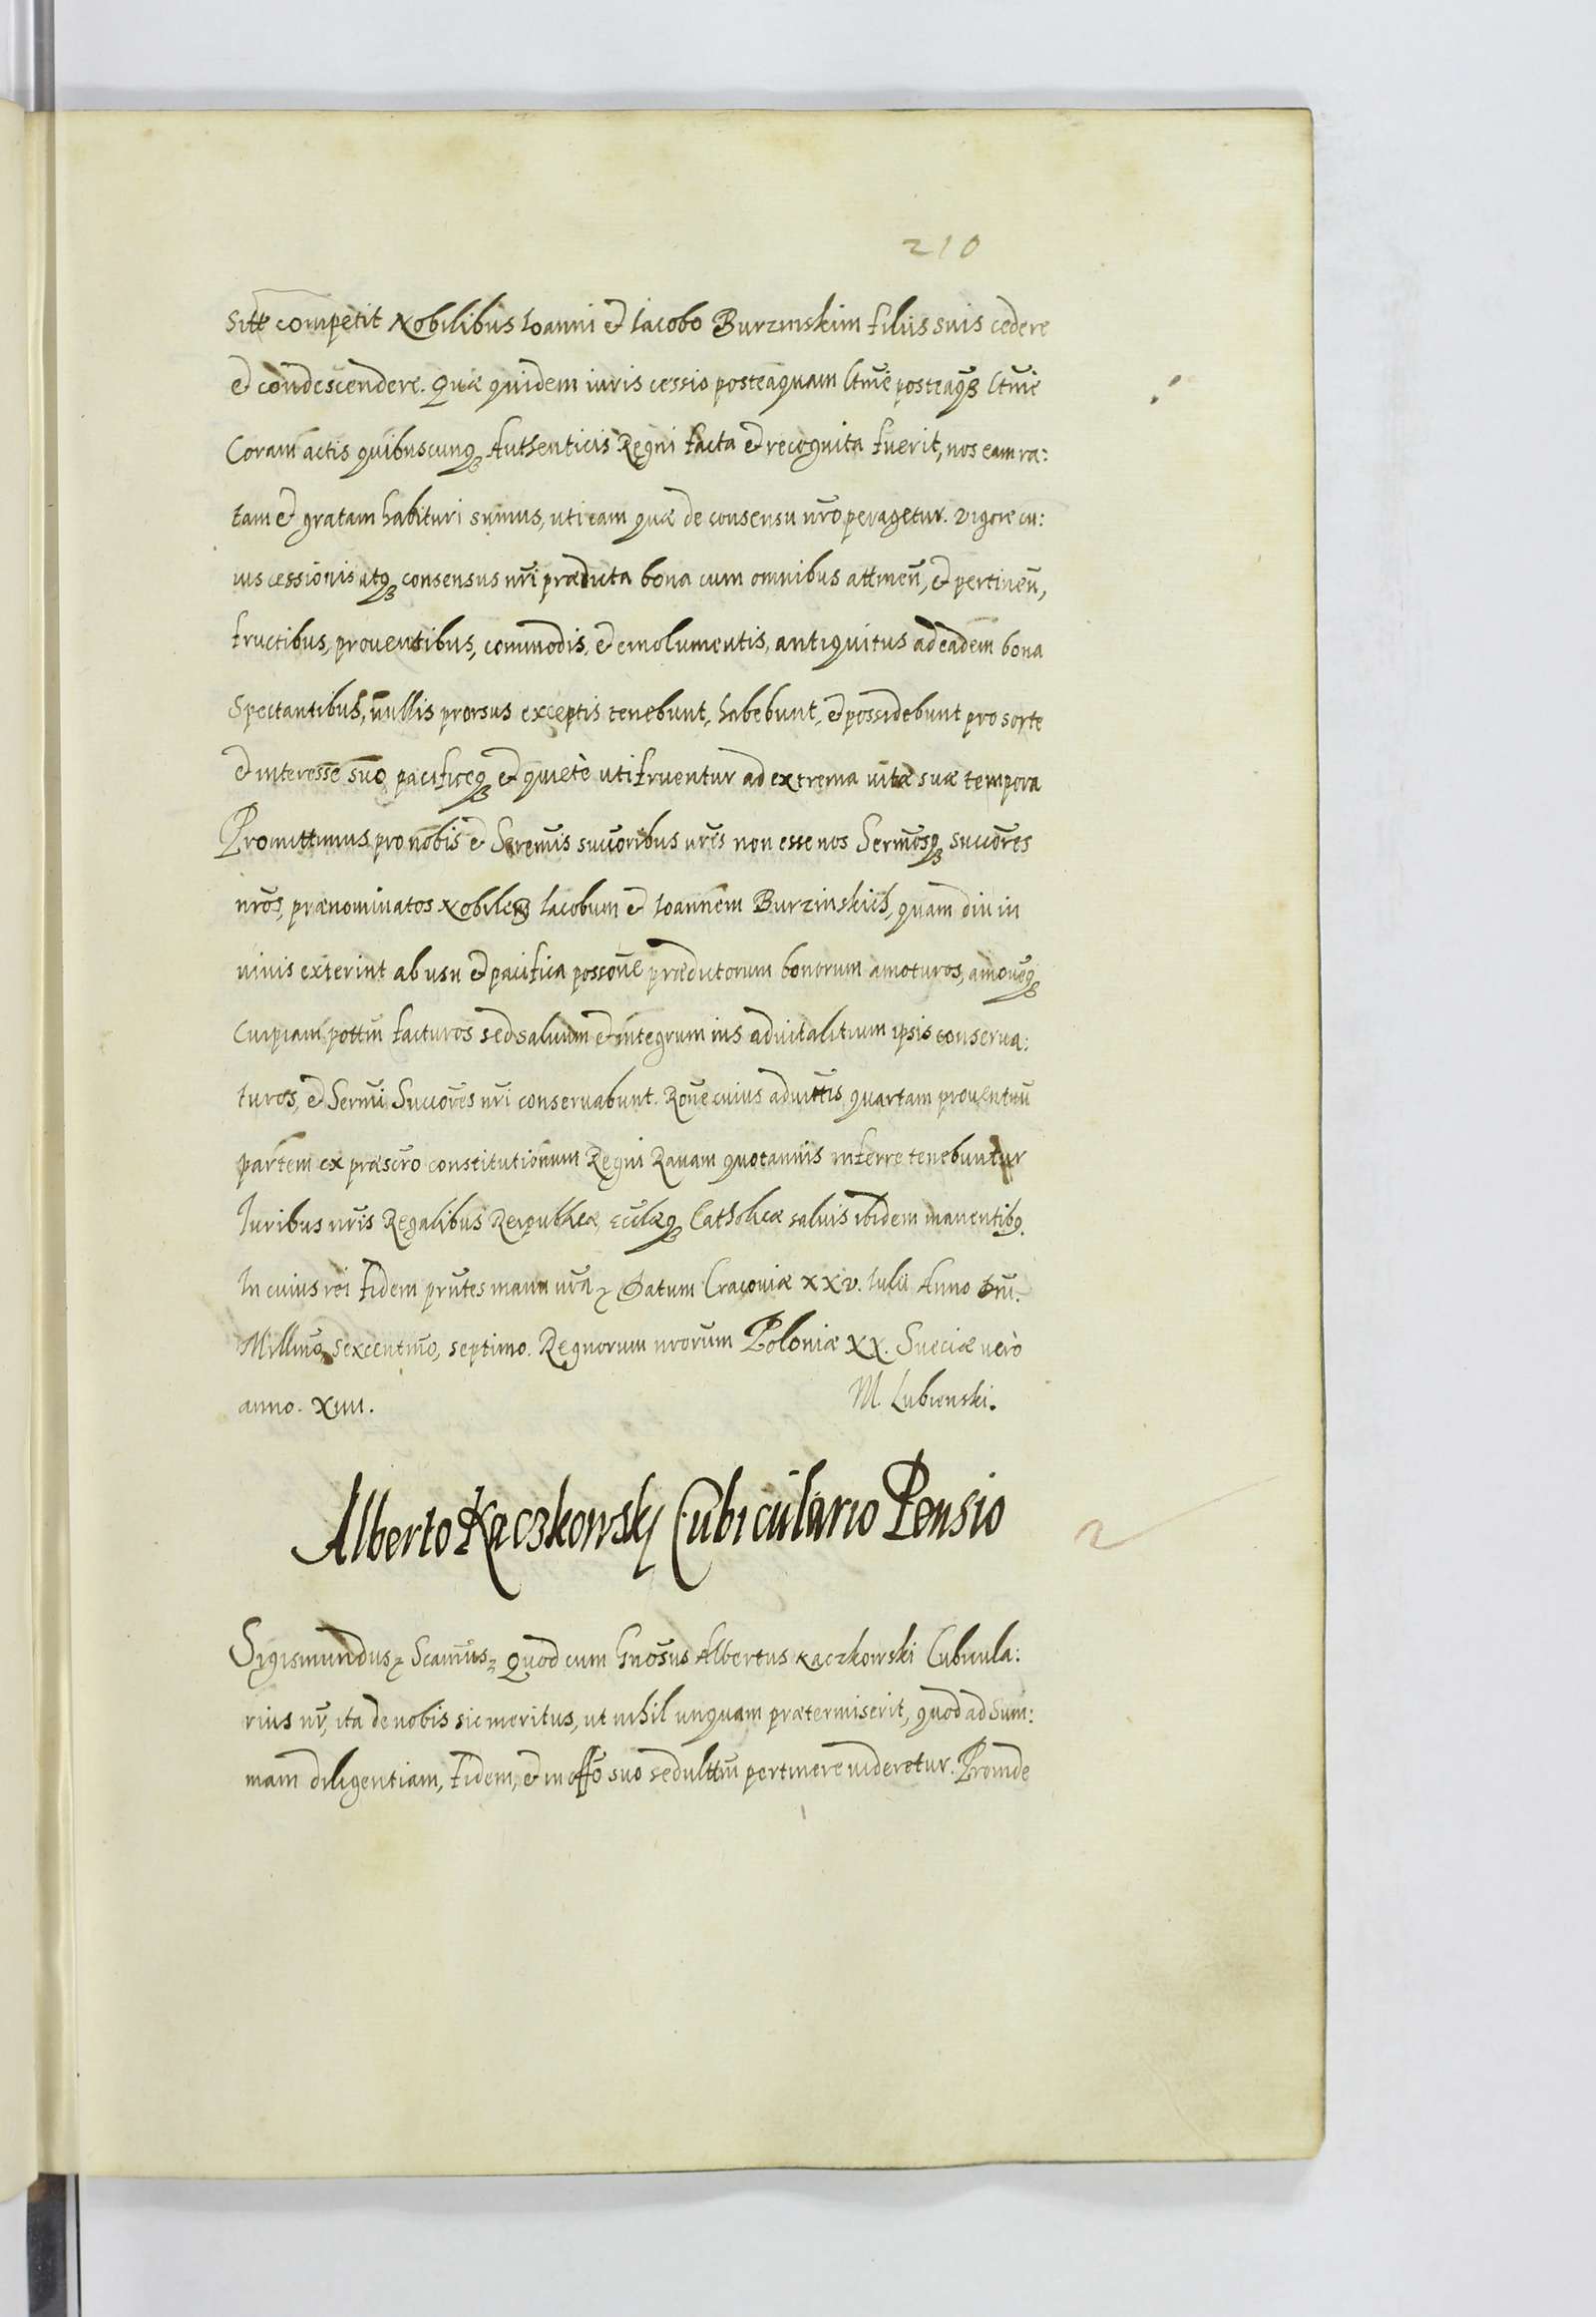 210
sitt competit Nobilibus Ioanni et Iacobo Burzinskim filiis suis cedere
et condescendere. Quæ quidem iuris cessio posteaquam ltm̃e posteaq̃ꝫ ltm̃e
Coram actis quibuscunqꝫ Authenticis Regni facta et recognita fuerit, nos eam ra:
tam et gratam habituri sumus, uti eam quæ de consensu nr̃o peragetur. Vigore cu:
ius cessionis atqꝫ consensus nr̃i prædicta bona cum omnibus attinen̄, et pertinen̄,
fructibus, prouentibus, commodis, et emolumentis, antiquitus ad eadem bona
spectantibus, nullis prorsus exceptis tenebunt, habebunt, et possidebunt pro sorte
et interesse suo, pacificeqꝫ et quietè uti fruentur ad extrema vitæ suæ tempora
Promittimus pro nobis et Seren̄is succoribus nr̃is non esse nos Serm̃osqꝫ succõres
nr̃os, prænominatos Nobiles Iacobum et Ioannem Burzinskich, quam diu in
uiuis exterint ab usu et pacifica possõne prædictorum bonorum amoturos, amoueq̃ꝫ
Cuipiam pottm̃ facturos sed saluum et integrum ius aduitalitium ipsis conserua:
turos, et Serm̃i Succõres nr̃i conseruabunt. Rõne cuius aduittis quartam prouentuũ
partem ex præscr̃o constitutionum Regni Rauam quotannis inferre tenebuntur
Iuribus nr̃is Regalibus Reipublicæ, ecclæqꝫ Catholicæ saluis ibidem manentibꝫ.
In cuius rei fidem prñtes manu nr̃a ꝛ Datum Cracouiæ XXV. Iulii Anno Dñi.
Millm̃o, sexcentm̃o, septimo. Regnorum nrorum Poloniæ XX. Sueciæ uerò
anno. XIIII. M. Lubienski.
Alberto Kaczkowskj Cubiculario Pensio
2
Sigismundus ꝛ Scamus ꝛ Quod cum Gnõsus Albertus Kaczkowski Cubicula:
rius nr̃, ita de nobis sie meritus, ut nihil unquam prætermiserit, quod ad Sum:
mam diligentiam, fidem, et in off̃o suo sedulttm̃ pertinere uideretur. Proinde